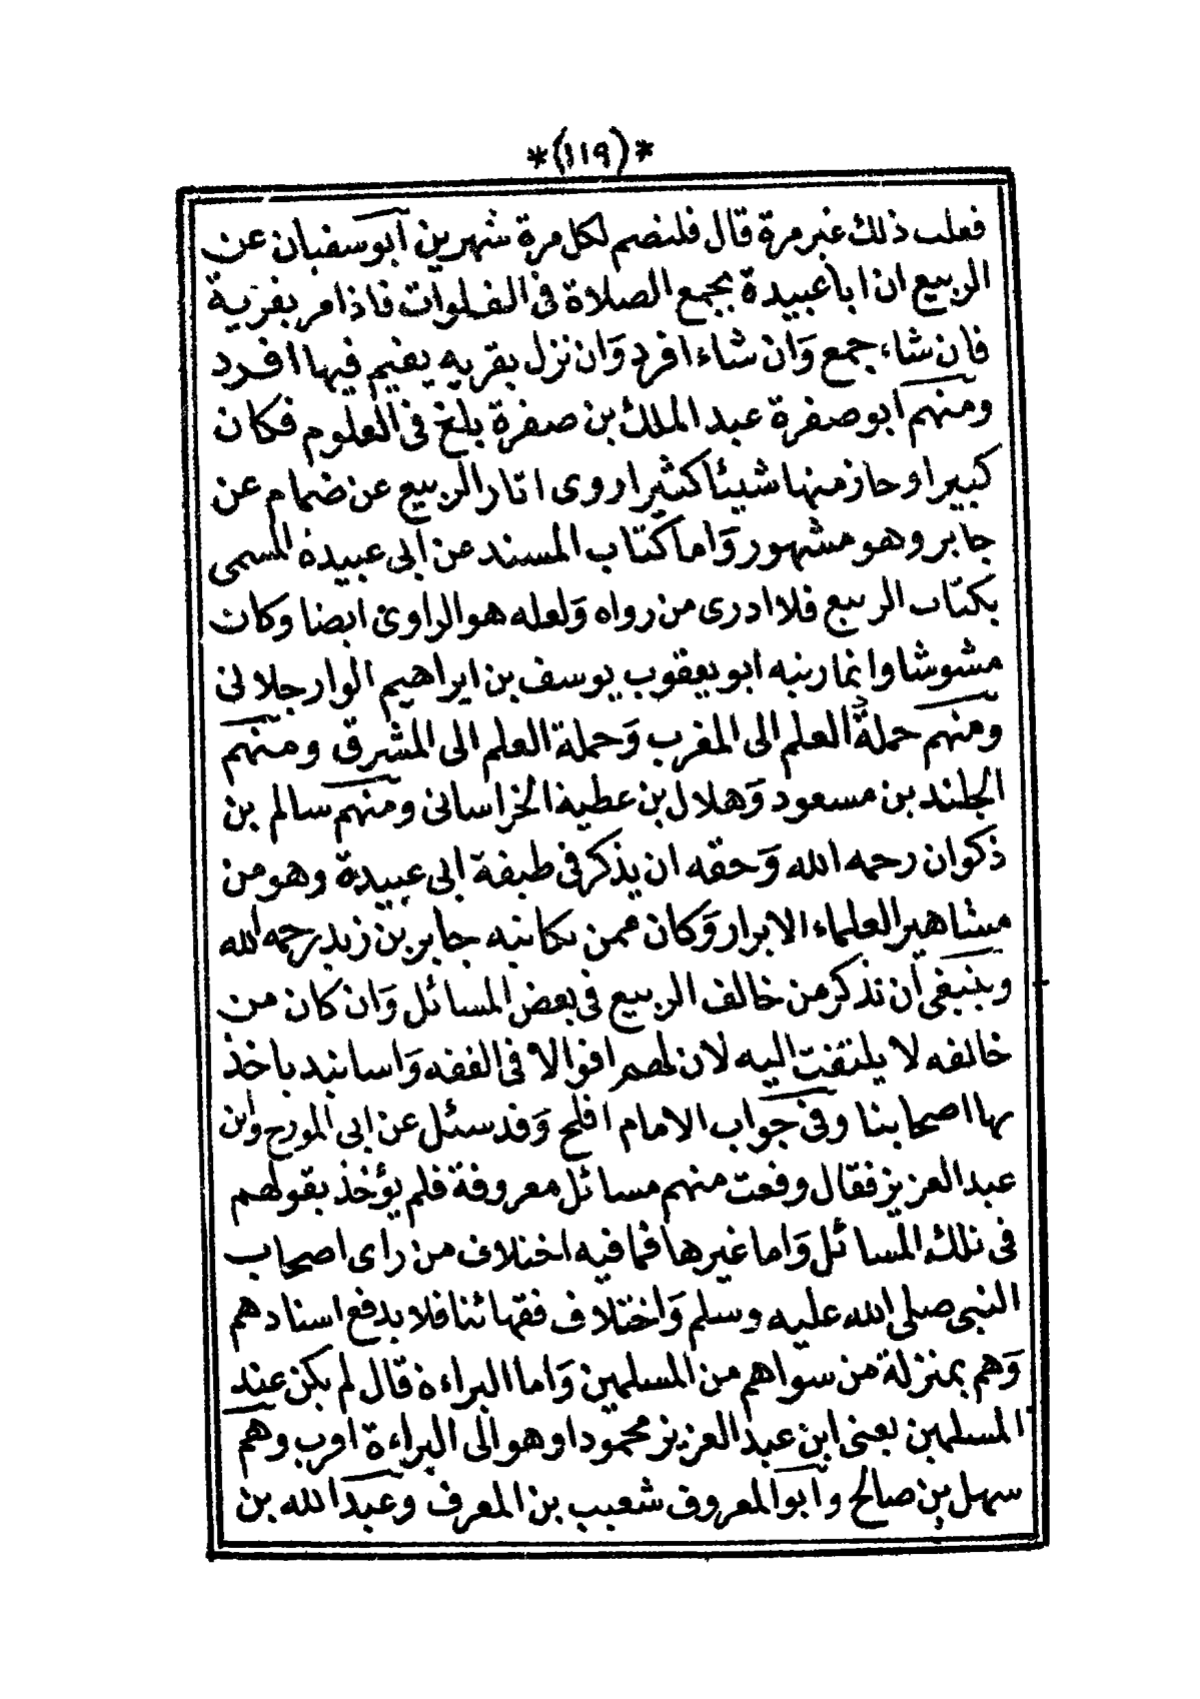 *(١١٩)*
فعلت ذلك غير مرة قال فلتصم لكل مرة شهرين أبو سفيان عن
الربيع ان ابا عبيدة يجمع الصلاة فى الفلوات فاذا مر بقرية
فان شاء جمع وان شاء افرد وان نزل بقريه يقيم فيها افرد
ومنهم ابو صفرة عبد الملك بن صفرة بلغ فى العلوم فكان
كبيرا وحاز منها شيئا كثيرا روى اثار الربيع عن ضمام عن
جابر وهو مشهور واما كتاب المسند عن أبى عبيدة المسمى
بكتاب الربيع فلا ادرى من رواه ولعله هو الراوى ايضا وكان
مشوشا وانما رتبه ابو يعقوب يوسف بن ابراهيم الوارجلانى
ومنهم حملة العلم الى المغرب وحملة العلم الى المشرق ومنهم
الجلند بن مسعود وهلال بن عطية الخراسانى ومنهم سالم بن
ذكوان رحمه الله وحقه ان يذكر فى طبقة ابى عبيدة وهو من
مشاهير العلماء الابرار وكان ممن يكاتبه جابر بن زيد رحمه الله
وينبغى أن نذكر من خالف الربيع فى بعض المسائل وان كان من
خالفه لا يلتفت اليه لان لهم اقوالا فى الفقه واسانيد ياخذ
بها اصحابنا وفى جواب الامام افلح وقد سئل عن ابى المورج وابن
عبد العزيز فقال وقعت منهم مسائل معروفة فلم يؤخذ بقولهم
فى تلك المسائل واما غيرها فما فيه اختلاف من راى اصحاب
النبى صلى الله عليه وسلم واختلاف فقهائنا فلا يدفع اسنادهم
وهم بمنزلة من سواهم من المسلمين واما البراءة قال لم يكن عند
المسلمين يعنى ابن عبد العزيز محمودا وهو الى البراءة اقرب وهم
سهل بن صالح وأبو المعروف شعيب بن المعرف وعبد الله بن